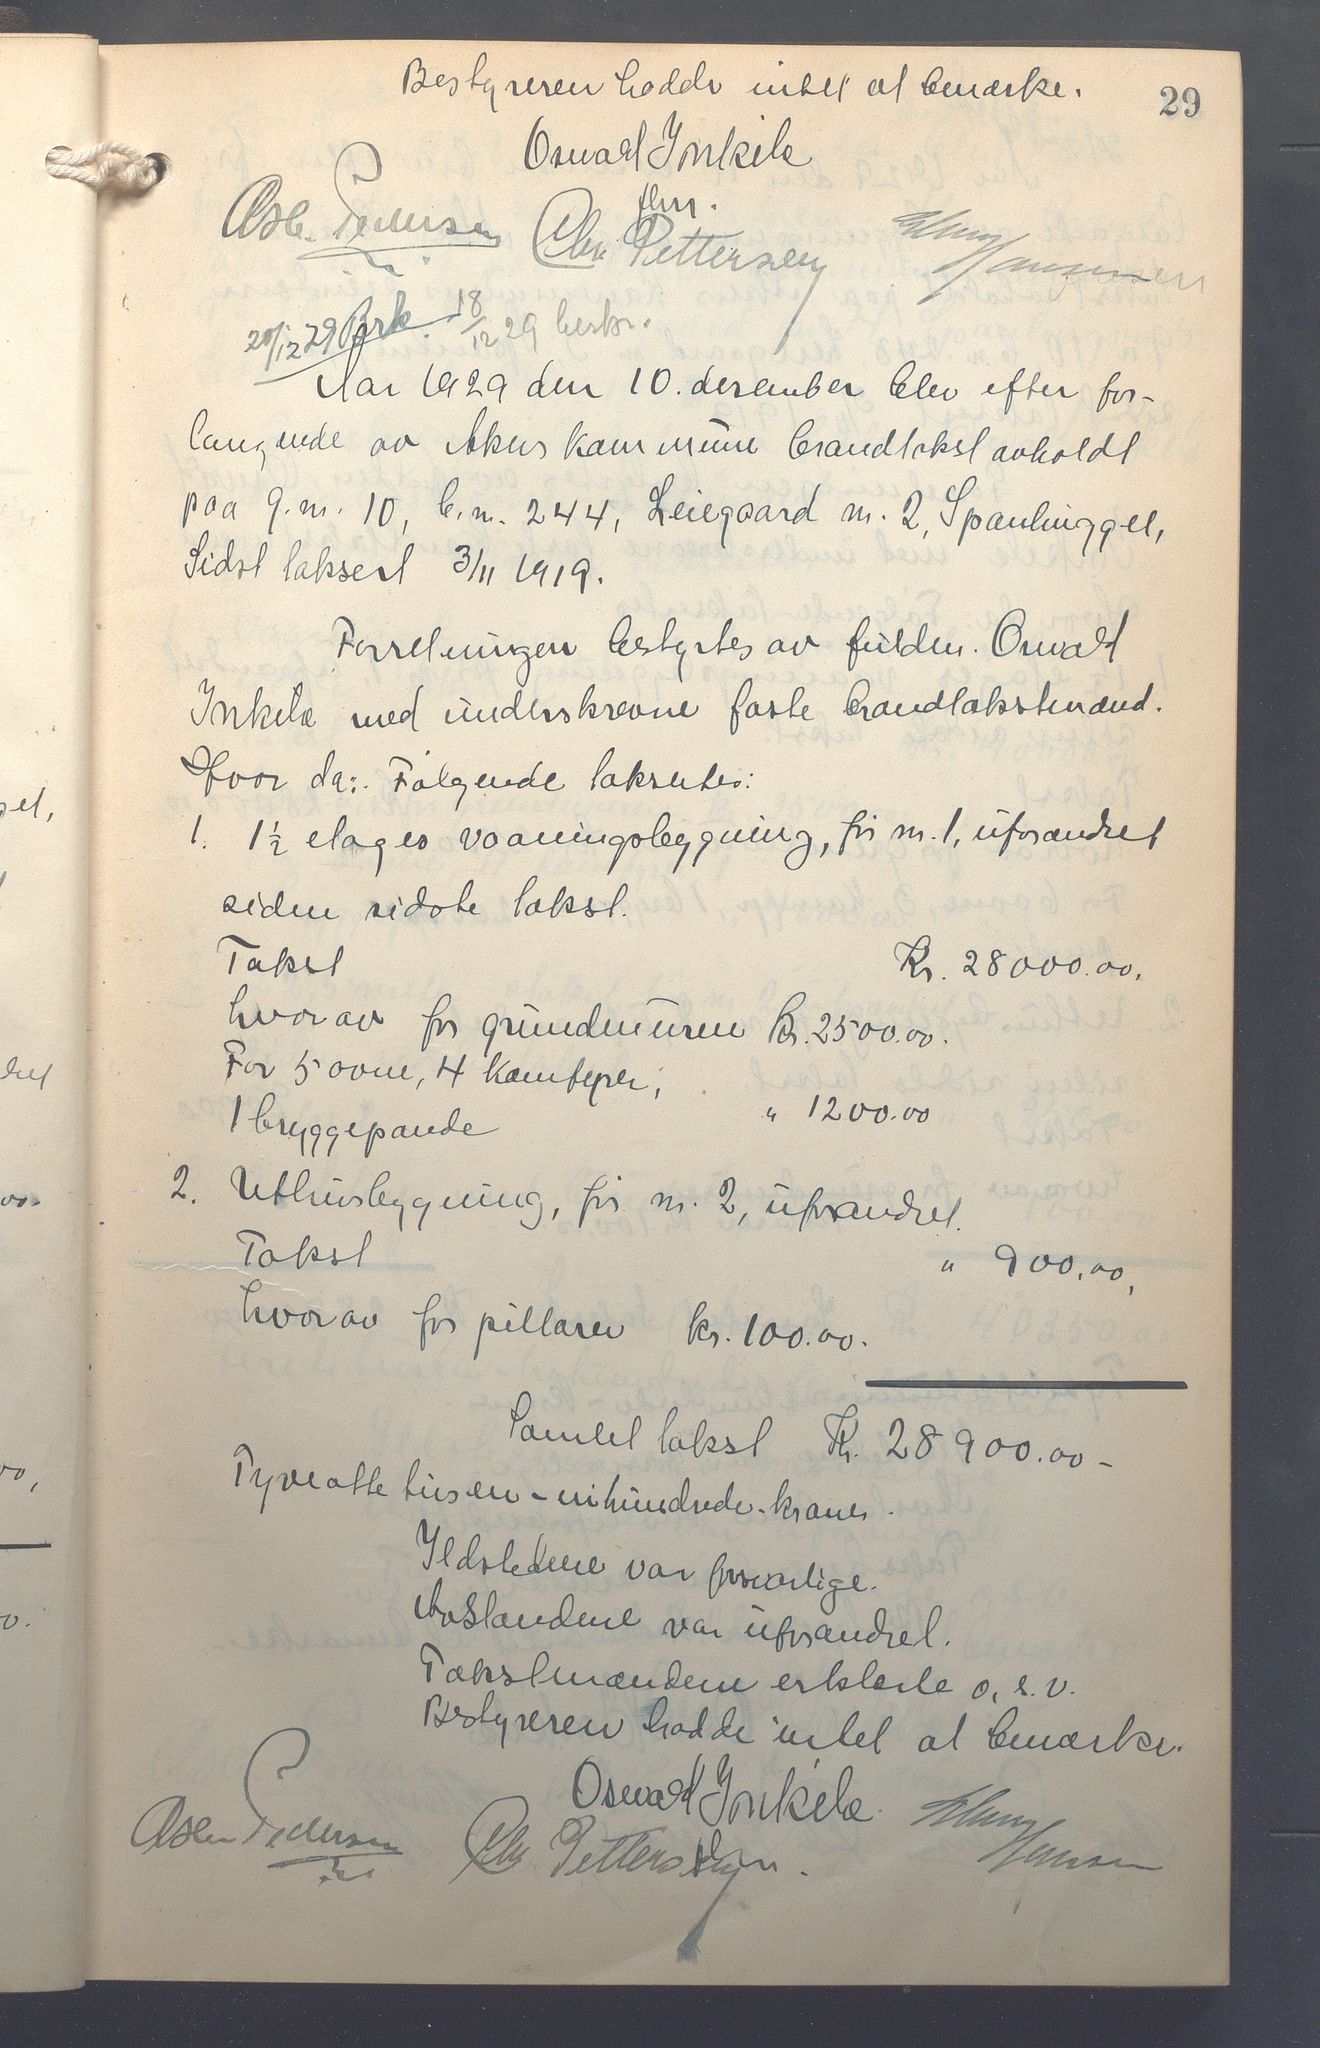 Bestyreren hadde intet at bemærke.
29
Oswald Inkilæ
fhm.
Asbr. Pedersen Chr. Pettersen Hansen
20/12 29 Brk. 18/12 29 beskr.
Aar 1929 den 10. desember blev efter for-
langende av Akers kommune brandtakst avholdt
paa g.nr. 10, b.nr. 244, Leiegaard nr. 2, Spanhugget,
Sidst taksert 3/11 1919.
Forretningen bestyrtes av fuldm. Oswald
Inkilæ med underskrevne faste brandtakstmænd.
Hvor da: Følgende taksertes:
1. 1½ etages vaaningsbygning, før nr. 1, uforandret
siden sidste takst.
Takst Kr. 28000.00.
hvorav for grundmuren kr. 2500.00.
For 5 ovne, 4 komfyrer,
1 bryggepande " 1200.00
2. Uthusbygning, før nr. 2, uforandret.
Takst " 900.00,
hvorav for pillarer kr. 100.00.
Samlet takst Kr. 28900.00 -
Tyveotte tusen - nihundrede - kroner.
Ildstedene var forsvarlige.
Avstandene var uforandret.
Takstmændene erklærte o.s.v.
Bestyreren hadde intet at bemærke.
Oswald Inkilæ
Asbr. Pedersen Chr. Pettersen Hansen